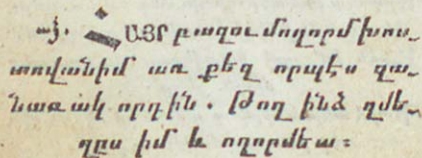 այ. ՀԱՅՐ բազումողորմ խոս֊
տովանիմ առ քեզ որպէս զա֊
նառակ որդին. Թող ինձ զմե֊
ղըս իմ և ողորմեա: